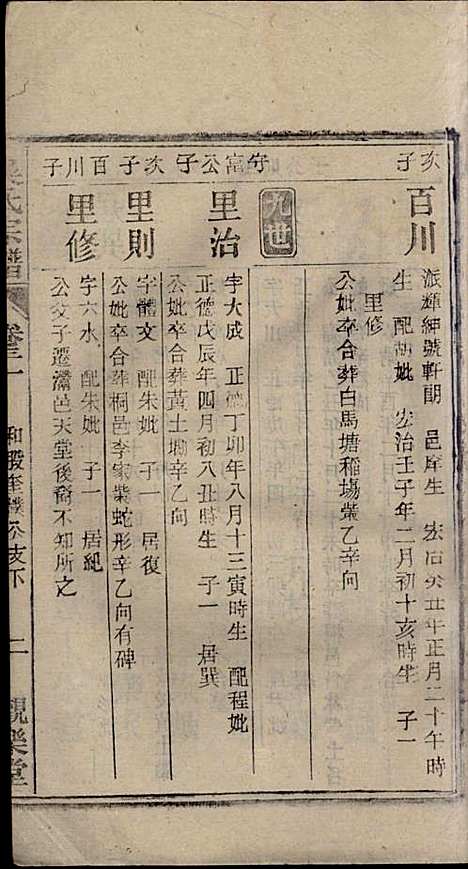 次子
百川
派輝紳號軒朗　邑庠生　宏治癸丑年正月二十午時
生　配胡妣　宏治壬子年二月初十亥時生　子一
里修
公妣卒合葬白馬塘稲塲業乙辛向
九世
守富公子
里治
字大成　正德丁卯年八月十三寅時生　配程妣
正德戊辰年四月初八丑時生　子一　居巽
公妣卒合葬黄土坳辛乙向
次子
里則
字體文　配朱妣　子一　居復
公妣卒合葬桐邑李家業蛇形辛乙向有碑
百川子
里修
字六水　配朱妣　子一　居紀
公父子遷灊邑天堂後裔不知所之
氏宗譜
卷三一
和股奎璞公支下
二
観樂堂